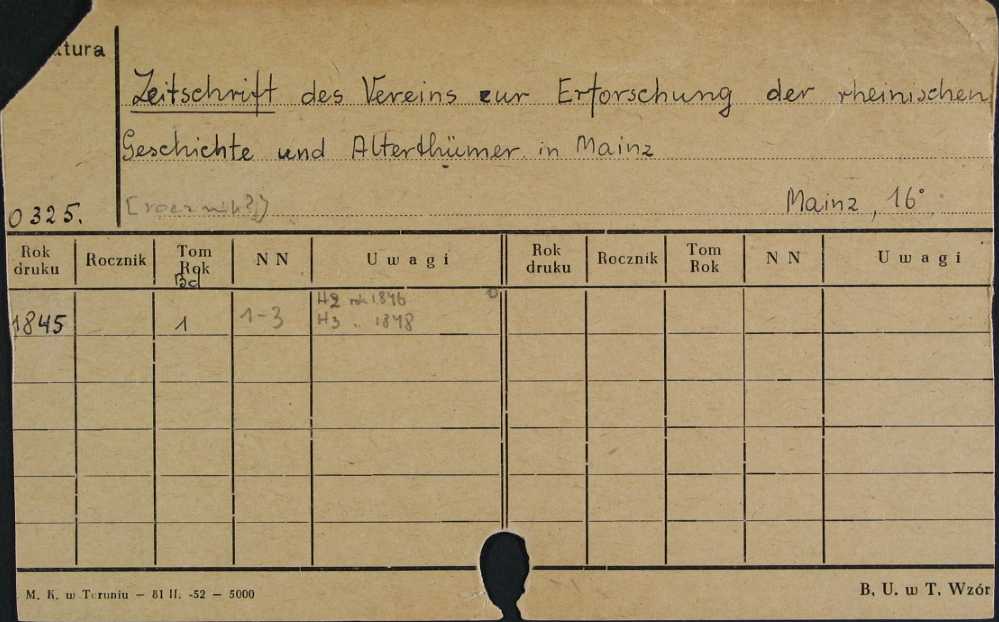 tura
Zeitschrift des Vereins zur Erforschung der rheinischen
Geschichte und Alterthümer in Mainz
[rocznik?]
Mainz, 16°
0325.
Rok druku Rocznik Tom Rok Bd NN Uwagi Rok druku Rocznik Tom Rok NN Uwagi
1845 1 1-3 H2 rok 1846
H3 „ 1848
M. K. w Toruniu — 81 II. -52 — 5000
B. U. w T. Wzór